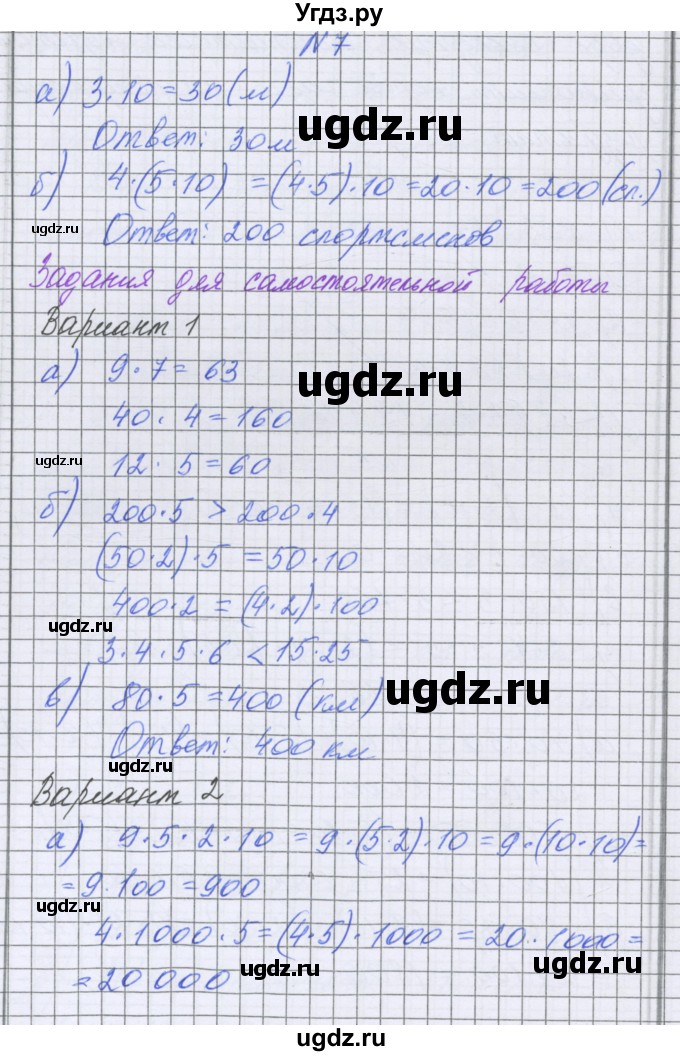 Угдз.ру
N7
а) 3·10=30(м)
ugdz.ru
Ответ: 30м
б) 4·(5·10) =(4·5)·10=20·10=200(сп.)
ugdz.ru
Ответ: 200 спортсменов
Задания для самостоятельной работы
Вариант 1
а) 9·7= 63
ugdz.ru
40· 4=160
ugdz.ru
12· 5=60
б) 200·5 > 200·4
(50·2)·5 =50·10
400·2 = (4·2)·100
ugdz.ru
3·4·5·6 <15·25
ugdz.ru
в) 80·5=400 (км)
Ответ: 400 км
ugdz.ru
Вариант 2
а) 9·5·2·10 =9·(5·2)·10=9·(10·10)=
=9·100=900
ugdz.ru
4·1000·5=(4·5)·1000=20·1000=
ugdz.ru
ugdz.ru
=20 000
ugdz.ru